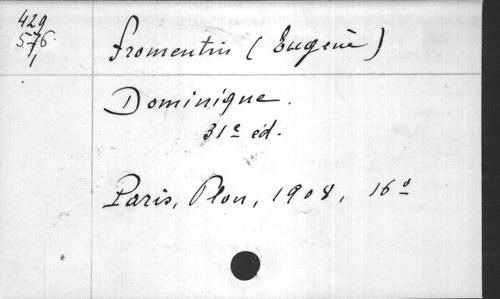 429
576
1
Fromentin (Eugène)
Dominique.
31e éd.
Paris, Plon, 1908, 16º